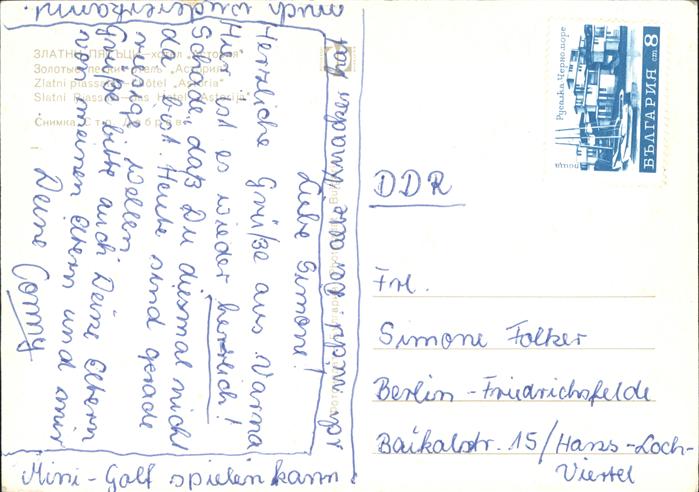 Liebe Simone!
Herzliche Grüße aus Varna
Hier ist es wieder herrlich!
Schade, daß Du diesmal nicht
da bist. Heute sind gerade
riesige Wellen.
Grüße bitte auch Deine Eltern
von meinen Eltern und mir
Deine Conny
Mini-Golf spielen kann.
gar nicht. Der alte Knacker hat
mich wiedererkannt.
ЗЛАТНИ ПЯСЪЦИ — хотел „Астория"
Золотые пески — отель „Астория"
Zlatni piassatzi — Hôtel „Astoria"
Slatni Piassazi — das Hotel „Astoria"
Снимка
DDR
Frl.
Simone Folker
Berlin-Friedrichsfelde
Baikalstr. 15/Hans-Loch-
Viertel
Русалка Черноморе
поща
БЪЛГАРИЯ ст 8